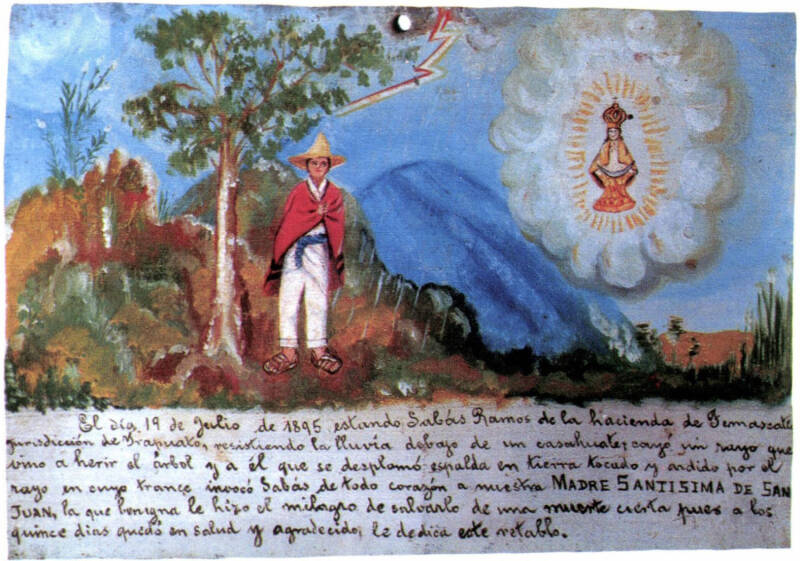 El día, 19 de Julio de 1895 estando Sabás Ramos de la hacienda de Temascatío
jurisdicción de Irapuato, resistiendo la lluvia debajo de un casahuate; cayó un rayo que
vino a herir el árbol y a él que se desplomó espalda en tierra tocado y ardido por el
rayo en cuyo trance invocó Sabás de todo corazón a nuestra MADRE SANTISIMA DE SAN
JUAN, la que benigna le hizo el milagro de salvarlo de una muerte cierta pues a los
quince dias quedó en salud y agradecido, le dedica este retablo.